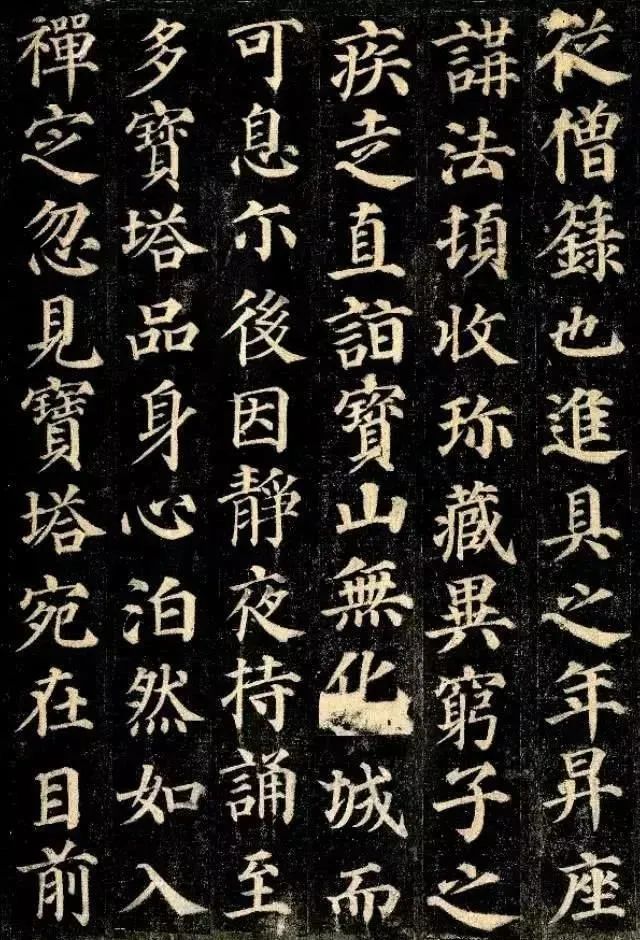 從僧籙也進具之年昇座
講法頓收珎藏異窮子之
疾走直詣寶山無化城而
可息尒後因靜夜持誦至
多寶塔品身心泊然如入
禪定忽見寶塔宛在目前